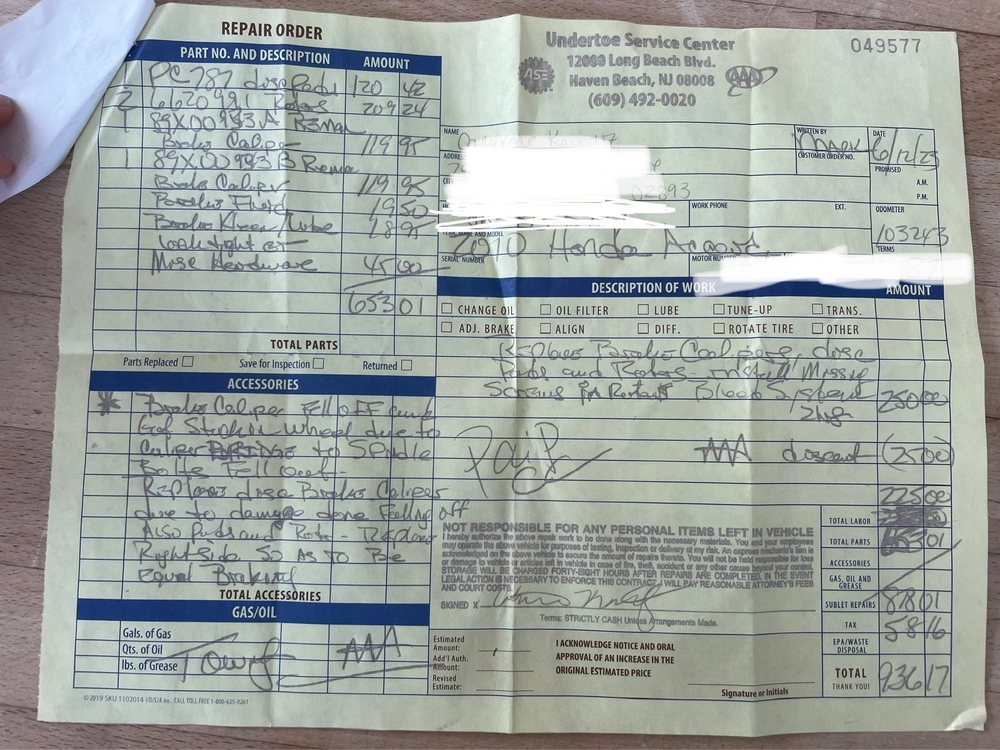 REPAIR ORDER
PART NO. AND DESCRIPTION AMOUNT
PC 787 disc Pads 120 42
2 6620991 Rotors 209 24
1 89X00993A Reman
Brake Caliper 119 95
1 89X00993B Reman
Brake Caliper 119 95
Brake Fluid 19 50
Brake Kleen/Lube 18 95
Misc Hardware 45 00
653 01
TOTAL PARTS
Parts Replaced Save for Inspection Returned
ACCESSORIES
* Brake Caliper Fell off and
Wheel due to
Caliper BRIDGE to Spindle
Bolts Fell out
Replace disc Brake Caliper
due to damage done Falling off
Also Pads and Rotor - Replace
Right Side SO AS TO Be
Equal Braking
TOTAL ACCESSORIES
GAS/OIL
Gals. of Gas
Qts. of Oil
lbs. of Grease
Towing AAA
© 2019 SKU 1102014 I/D/E/A inc. CALL TOLL FREE 1-800-635-9261
Undertoe Service Center
12000 Long Beach Blvd.
Haven Beach, NJ 08008
(609) 492-0020
ASE
AAA
049577
NAME
WRITTEN BY MARK
DATE 6/12/23
ADDRESS
CUSTOMER ORDER NO.
PROMISED
A.M.
P.M.
02893
WORK PHONE EXT. ODOMETER
103243
YEAR, MAKE AND MODEL
2010 Honda Accord
TERMS
SERIAL NUMBER MOTOR NUMBER
DESCRIPTION OF WORK AMOUNT
CHANGE OIL OIL FILTER LUBE TUNE-UP TRANS.
ADJ. BRAKE ALIGN DIFF. ROTATE TIRE OTHER
Replace Brake Calipers, disc
Pads and Rotors - install Missing
Screws for Rotors Bleed System 250 00
2hrs
Paid
AAA discount (25 00)
225 00
NOT RESPONSIBLE FOR ANY PERSONAL ITEMS LEFT IN VEHICLE
I hereby authorize the above repair work to be done along with the necessary materials. You and your employees
may operate the above vehicle for purposes of testing, inspection or delivery at my risk. An express mechanic's lien is
acknowledged on the above vehicle to secure the amount of repairs thereto. You will not be held responsible for loss
or damage to vehicle or articles left in vehicle in case of fire, theft, accident or any other cause beyond your control.
STORAGE WILL BE CHARGED FORTY-EIGHT HOURS AFTER REPAIRS ARE COMPLETED. IN THE EVENT
LEGAL ACTION IS NECESSARY TO ENFORCE THIS CONTRACT, I WILL PAY REASONABLE ATTORNEY'S FEES
AND COURT COSTS.
SIGNED X
Terms: STRICTLY CASH Unless Arrangements Made.
TOTAL LABOR
TOTAL PARTS 653 01
ACCESSORIES
GAS, OIL AND GREASE
SUBLET REPAIRS 878 01
TAX 58 16
EPA/WASTE DISPOSAL
TOTAL 936 17
THANK YOU!
Estimated Amount:
Add'l Auth. Amount:
Revised Estimate:
I ACKNOWLEDGE NOTICE AND ORAL
APPROVAL OF AN INCREASE IN THE
ORIGINAL ESTIMATED PRICE
Signature or Initials